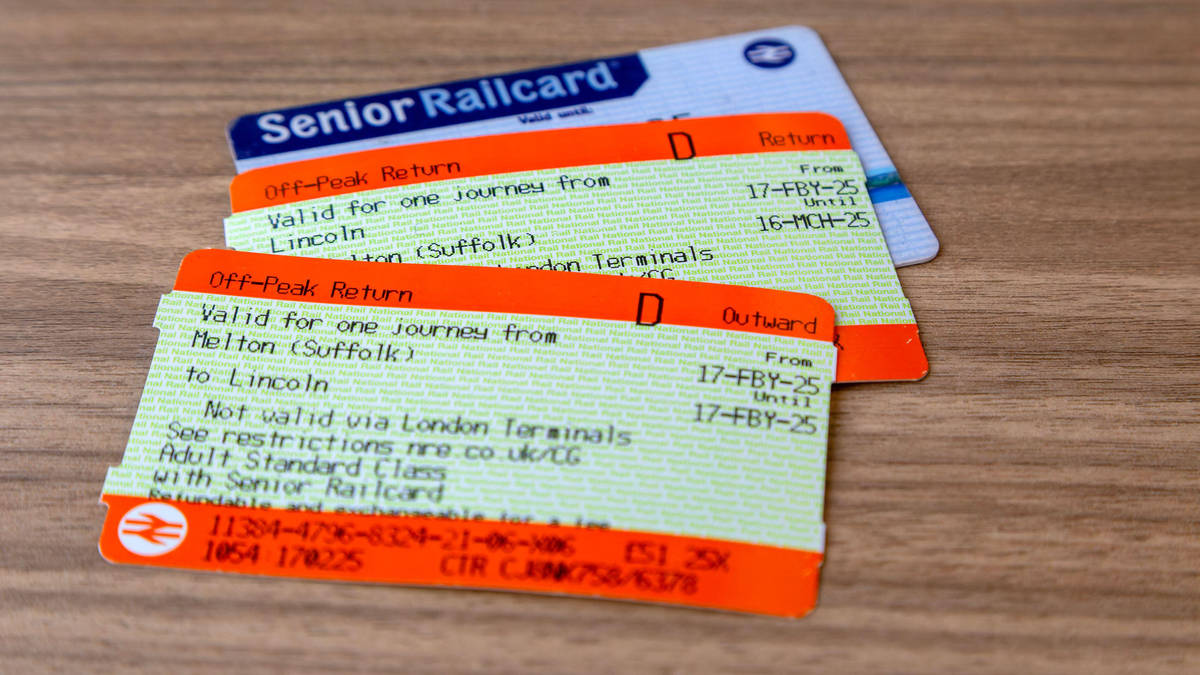 Senior Railcard
Valid until:
Off-Peak Return D Return
Valid for one journey from From
Lincoln 17-FBY-25
Until
16-MCH-25
Melton (Suffolk)
London Terminals
uk/CG
Off-Peak Return D Outward
Valid for one journey from From
Melton (Suffolk) 17-FBY-25
Until
to Lincoln 17-FBY-25
Not valid via London Terminals
See restrictions nre co uk/CG
Adult Standard Class
with Senior Railcard
Refundable and exchangeable for a fee
11384-4796-8324-21-06-X06 ES1 25X
1054 170225 CTR